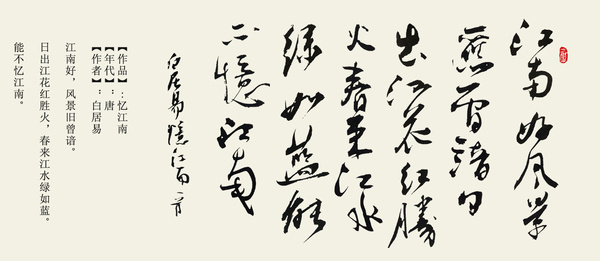 江南好风景
舊曾諳日
出江花红勝
火春来江水
绿如藍能
不憶江南
白居易憶江南一首
【作品】:忆江南
【年代】:唐
【作者】:白居易
江南好,风景旧曾谙。
日出江花红胜火,春来江水绿如蓝。
能不忆江南。